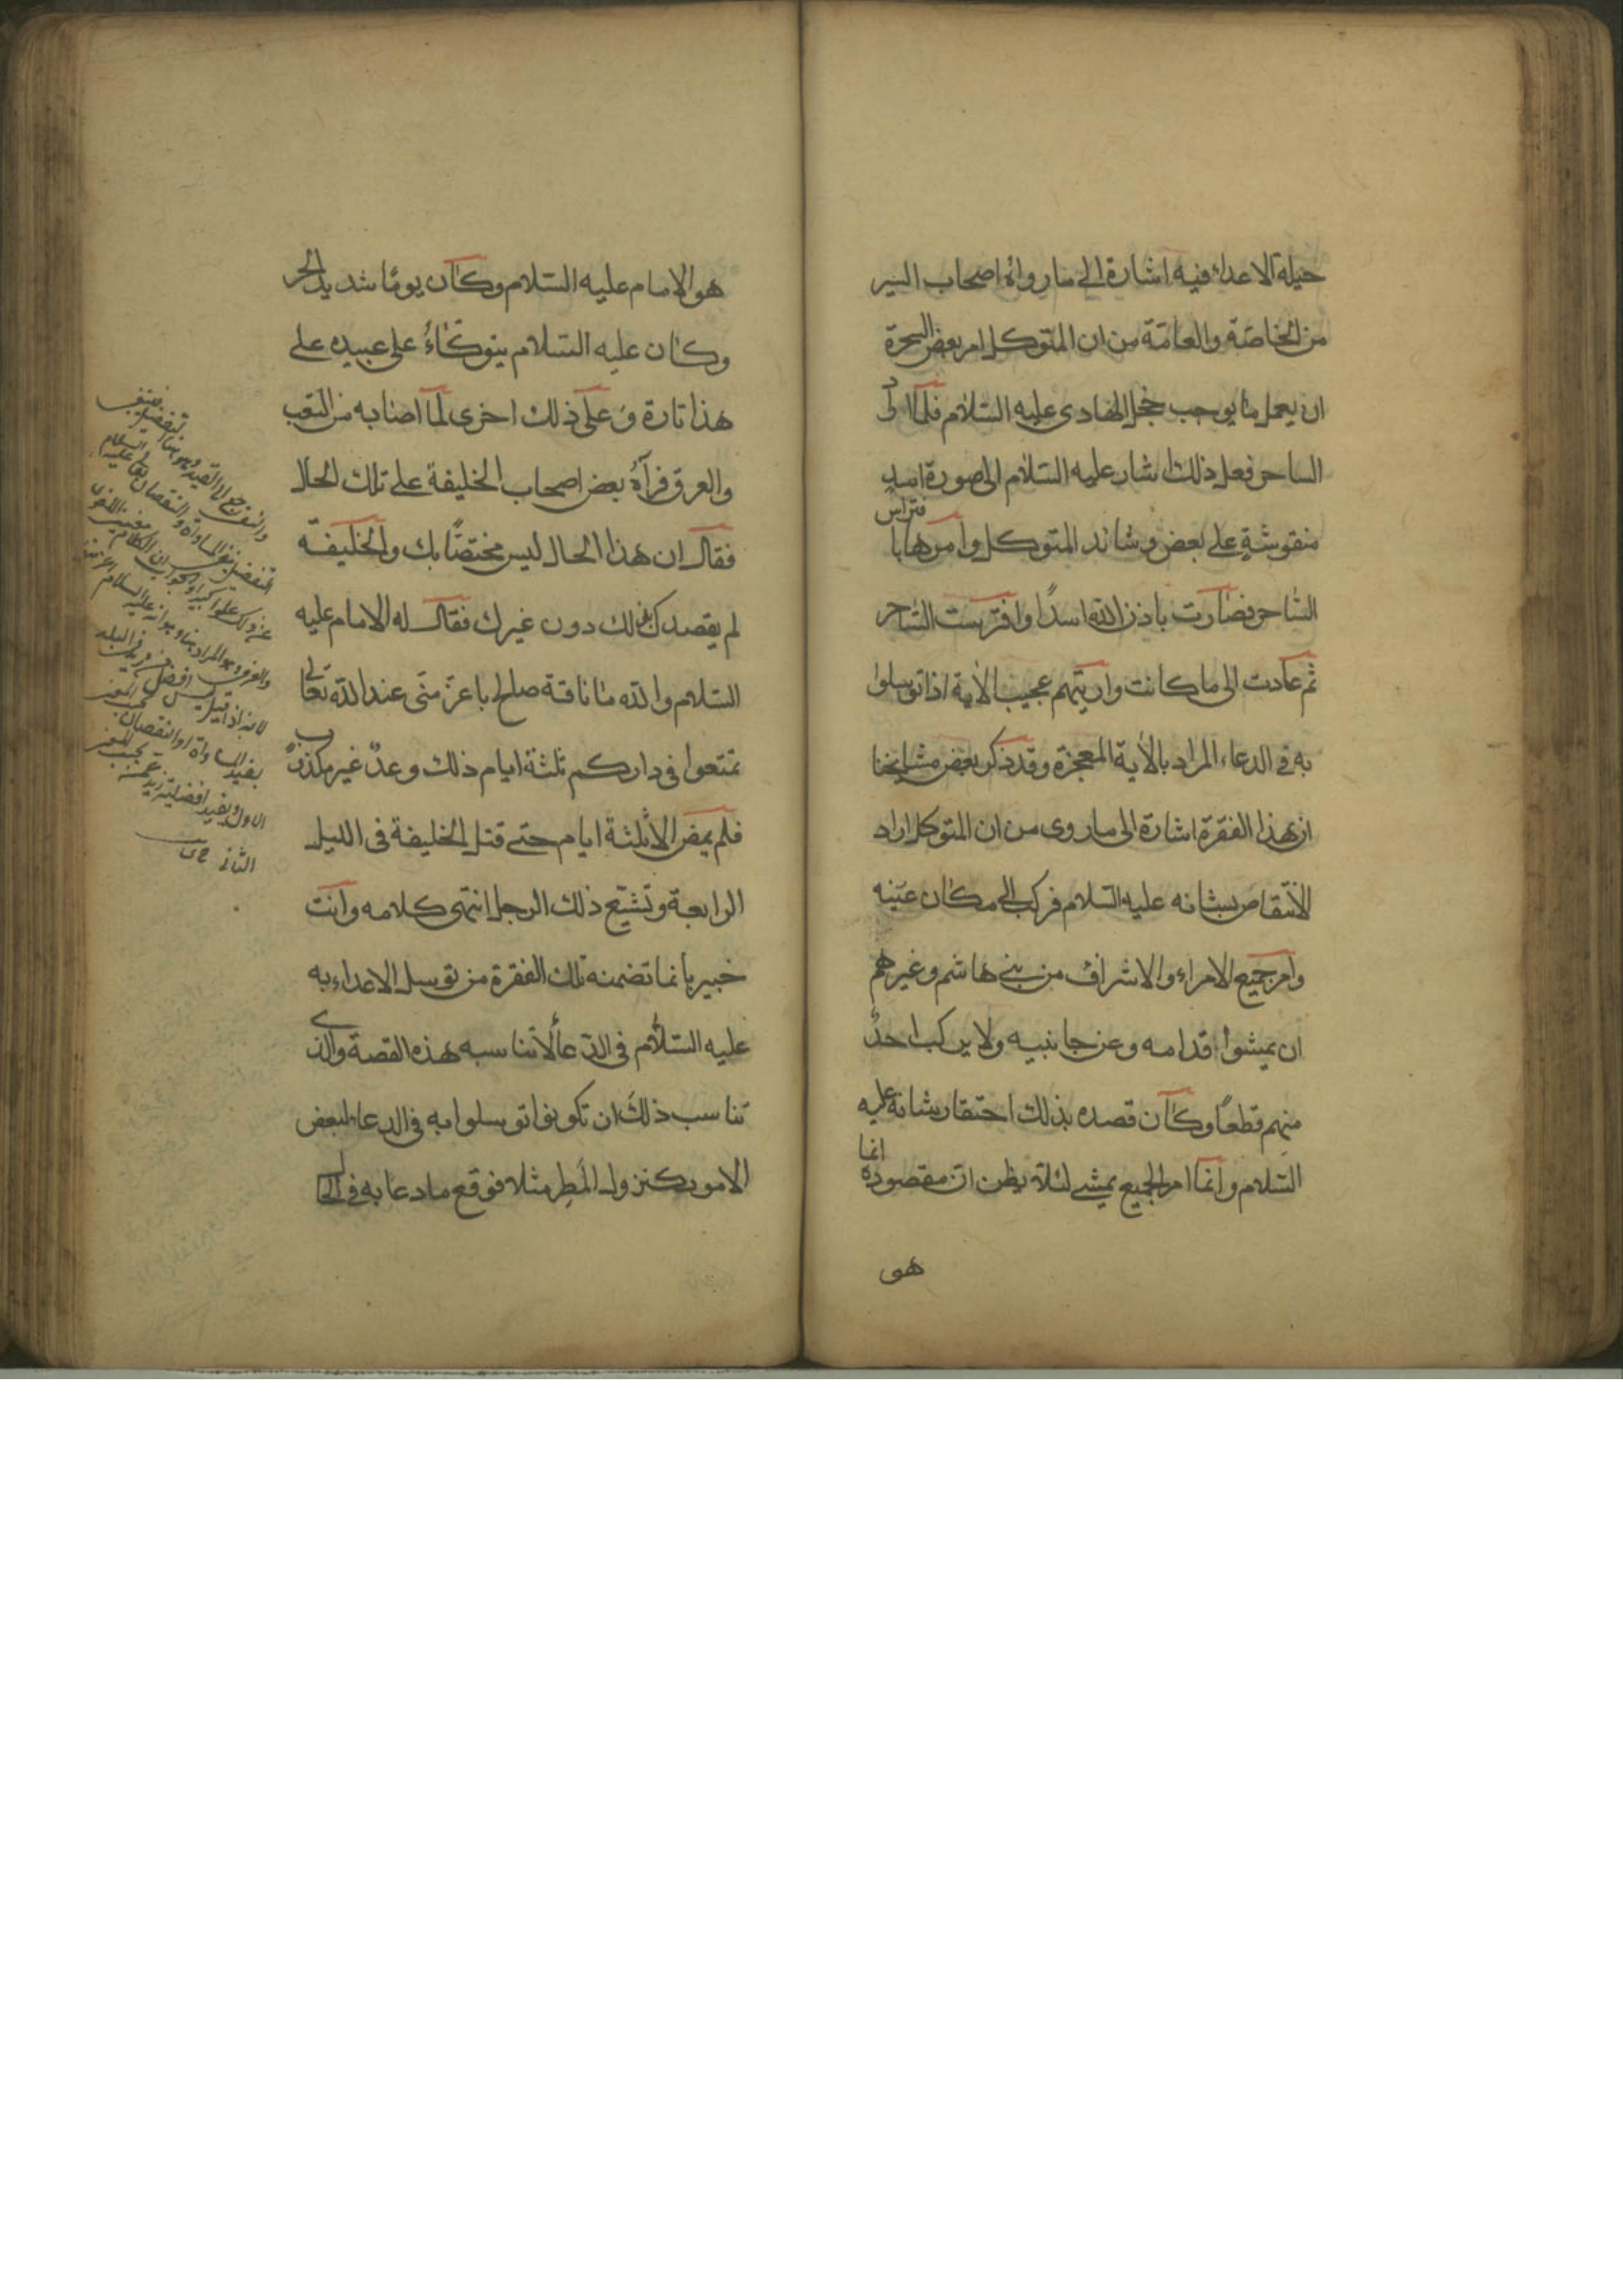 حيلة الاعداء فيه اشارة الى ما رواه اصحاب السير
من الخاصّة والعامّة من ان المتوكل امر بعض السحرة
ان يعمل ما يوجب خجل الهادى عليه السّلام فلمّا اراد
الساحر فعل ذلك اشار عليه السّلام الى صورة اسد
منقوشة على بعض وسائد المتوكل وامرها بافتراس
السّاحر فصارت باذن اللّه اسدًا وافترست السّاحر
ثم عادت الى ما كانت وان يتهم عجيب الآية اذا توسلوا
به فى الدعاء المراد بالآية المعجزة وقد ذكر بعض مشايخنا
ان بهذا الفقرة اشارة الى ما روى من ان المتوكل اراد
الانتقاص بشانه عليه السّلام فركب الى مكان عيّنه
وامر جميع الامراء والاشراف من بنى هاشم وغيرهم
ان يمشوا قدامه وعن جانبيه ولا يركب احدٌ
منهم قطعًا وكان قصده بذلك احتقار شانه عليه
السّلام وانما امر الجميع بمشى لئلا يظن ان مقصوده انما
هو
هو الامام عليه السّلام وكان يومًا شديد الحر
وكان عليه السّلام يتوكّأُ على عبيده على
هذا تارة وعلى ذلك اخرى لمّا اصابه من التعب
والعرق فرآه بعض اصحاب الخليفة على تلك الحال
فقال ان هذا الحال ليس مختصًّا بك والخليفة
لم يقصدك بذلك دون غيرك فقال له الامام عليه
السّلام واللّه ما ناقة صالح باعزّ منّى عند اللّه تعالى
تمتعوا فى داركم ثلثة ايام ذلك وعدٌ غير مكذوب
فلم يمض الا ثلثة ايام حتى قتل الخليفة فى الليل
الرابعة وتشيّع ذلك الرجل انتهى كلامه وانت
خبير بانما تضمنه تلك الفقرة من توسل الاعداء به
عليه السّلام فى الدّعاء لا تناسبه هذه القصة والذى
تناسب ذلك ان تكونوا توسلوا به فى الدعاء لبعض
الامور كنزول المطر مثلا فوقع ما دعا به فى الحال
المساواة والنقصان
والعرف
افضل من زيد فى البلد
يفيد المساواة او النقصان
الاول ويفيد افضلية زيد
الثانى